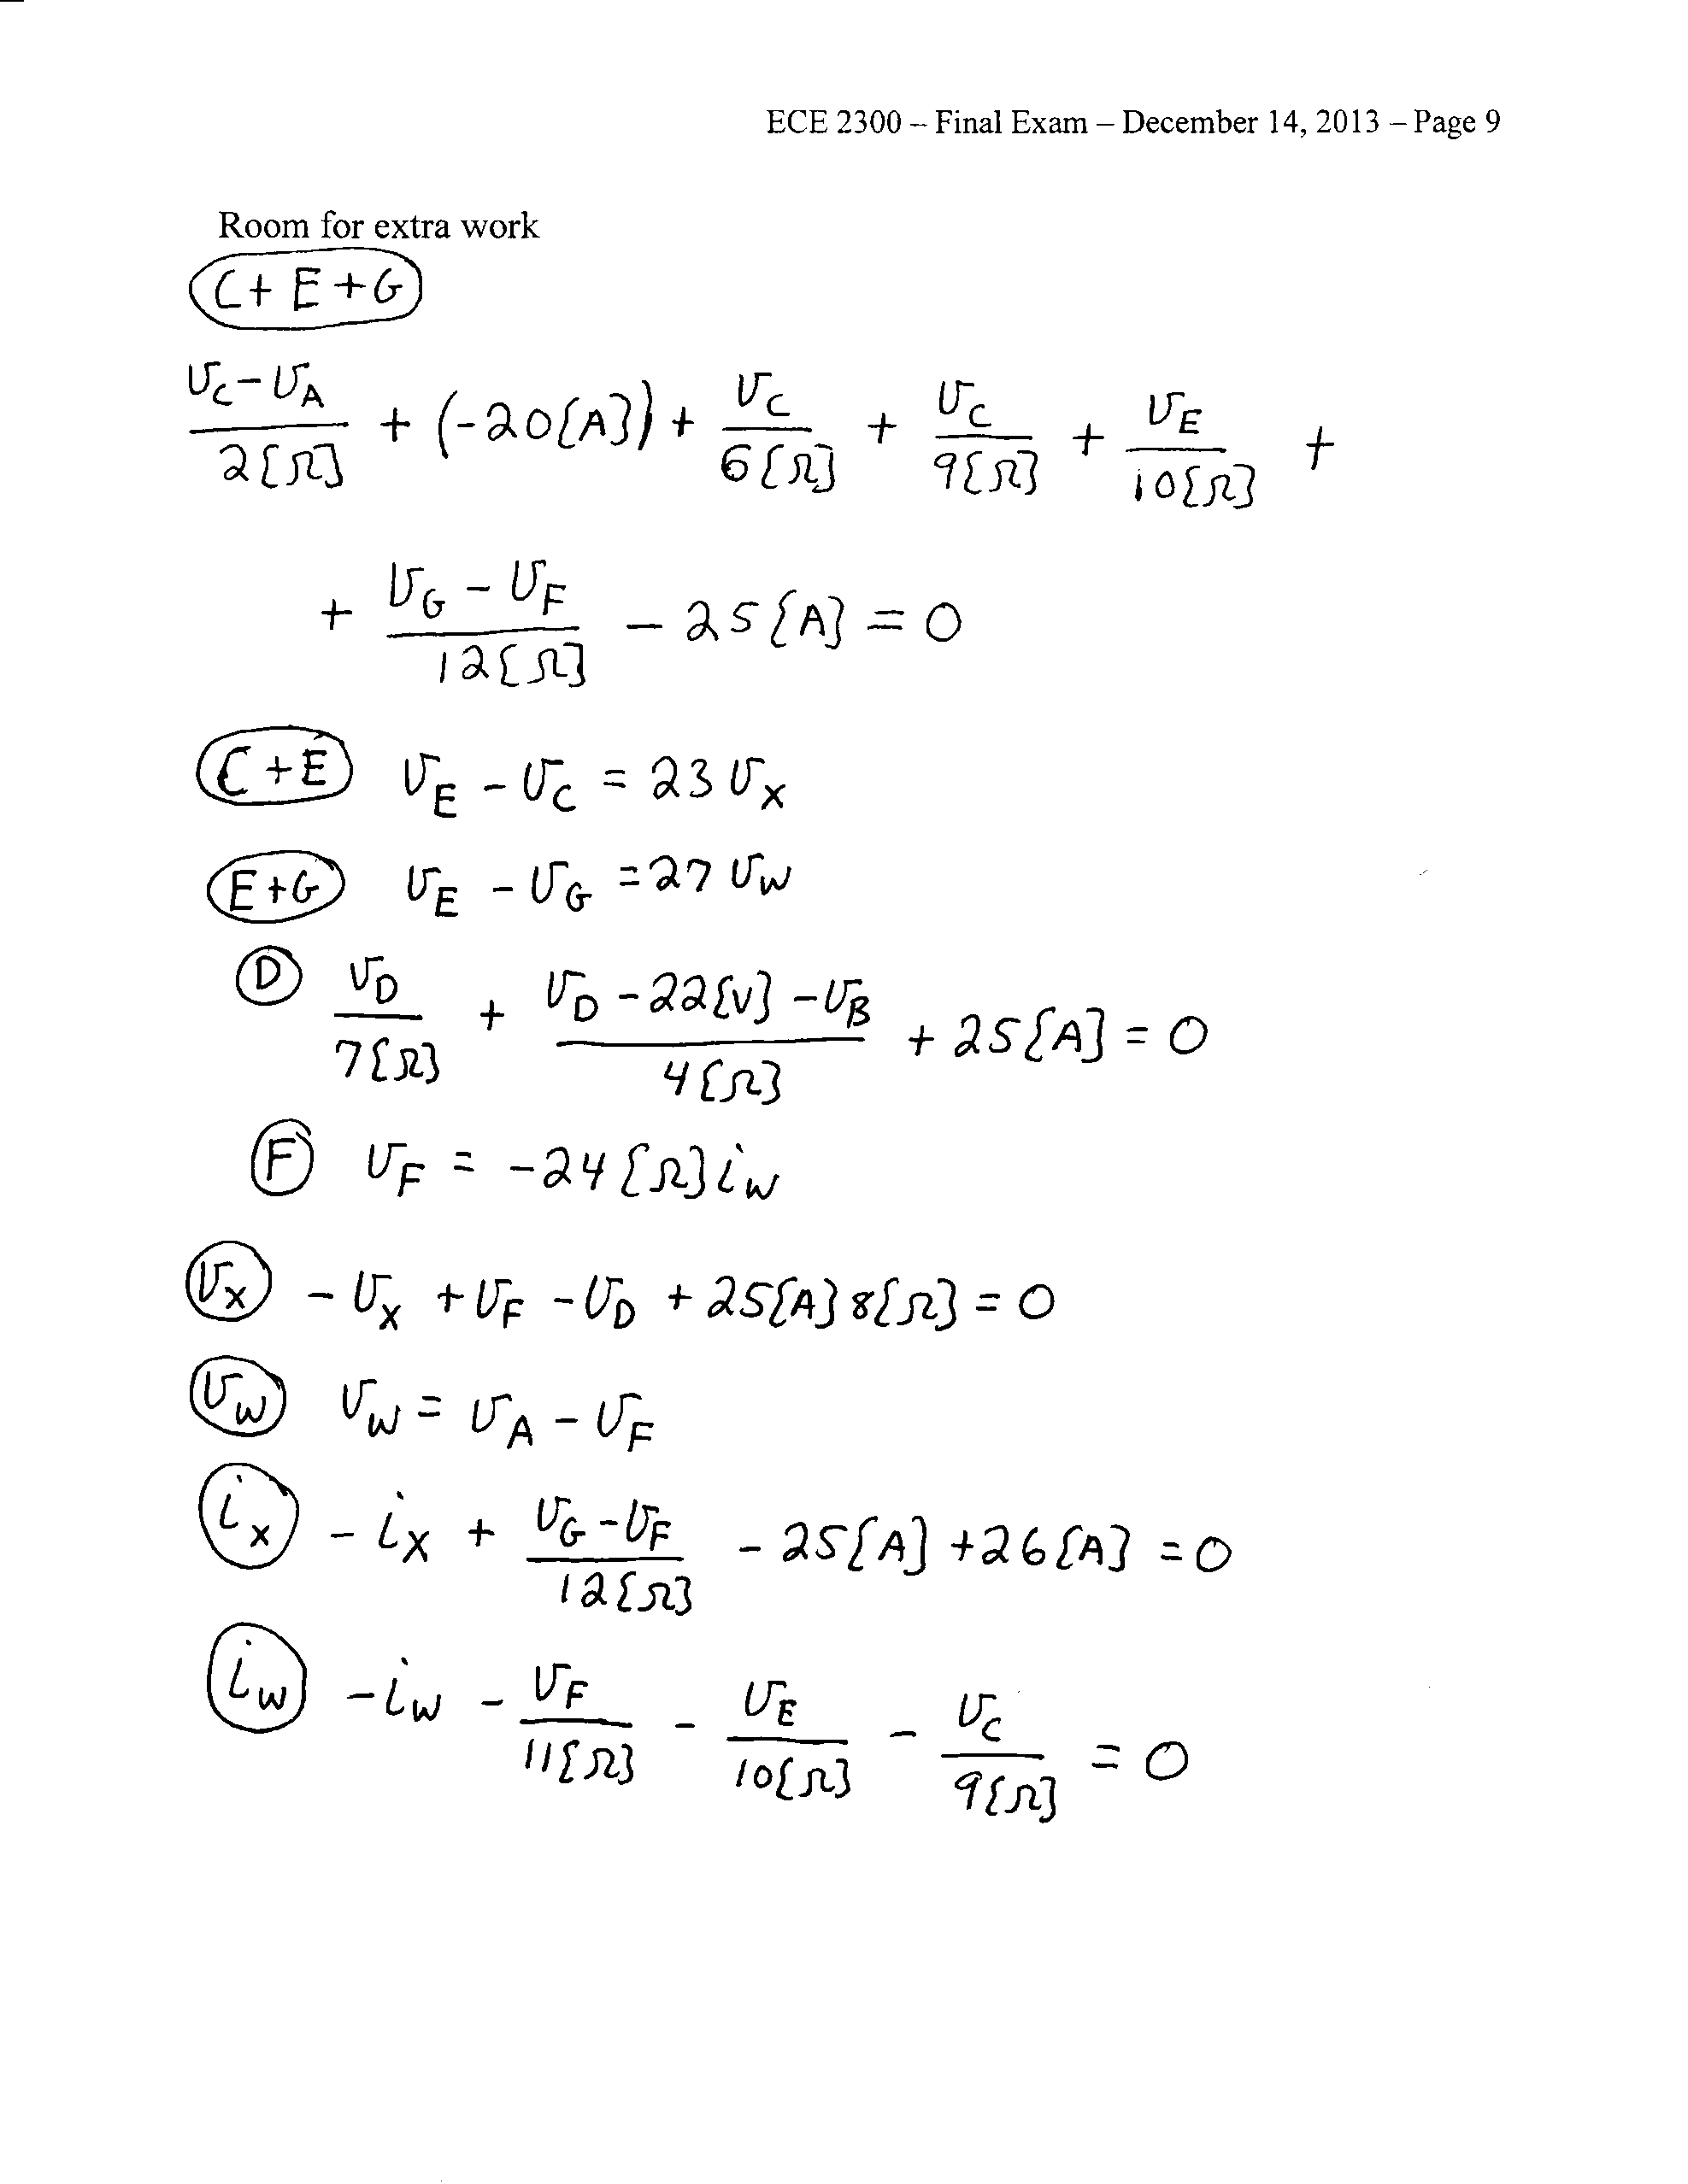 ECE 2300 – Final Exam – December 14, 2013 – Page 9
Room for extra work
C + E + G
(v_C - v_A)/2[Ω] + (-20[A]) + v_C/6[Ω] + v_C/9[Ω] + v_E/10[Ω] +
+ (v_G - v_F)/12[Ω] - 25[A] = 0
C + E v_E - v_C = 23 v_X
E + G v_E - v_G = 27 v_W
D v_D/7[Ω] + (v_D - 22[V] - v_B)/4[Ω] + 25[A] = 0
F v_F = -24[Ω] i_W
v_X - v_X + v_F - v_D + 25[A] 8[Ω] = 0
v_W v_W = v_A - v_F
i_X - i_X + (v_G - v_F)/12[Ω] - 25[A] + 26[A] = 0
i_W - i_W - v_F/11[Ω] - v_E/10[Ω] - v_C/9[Ω] = 0